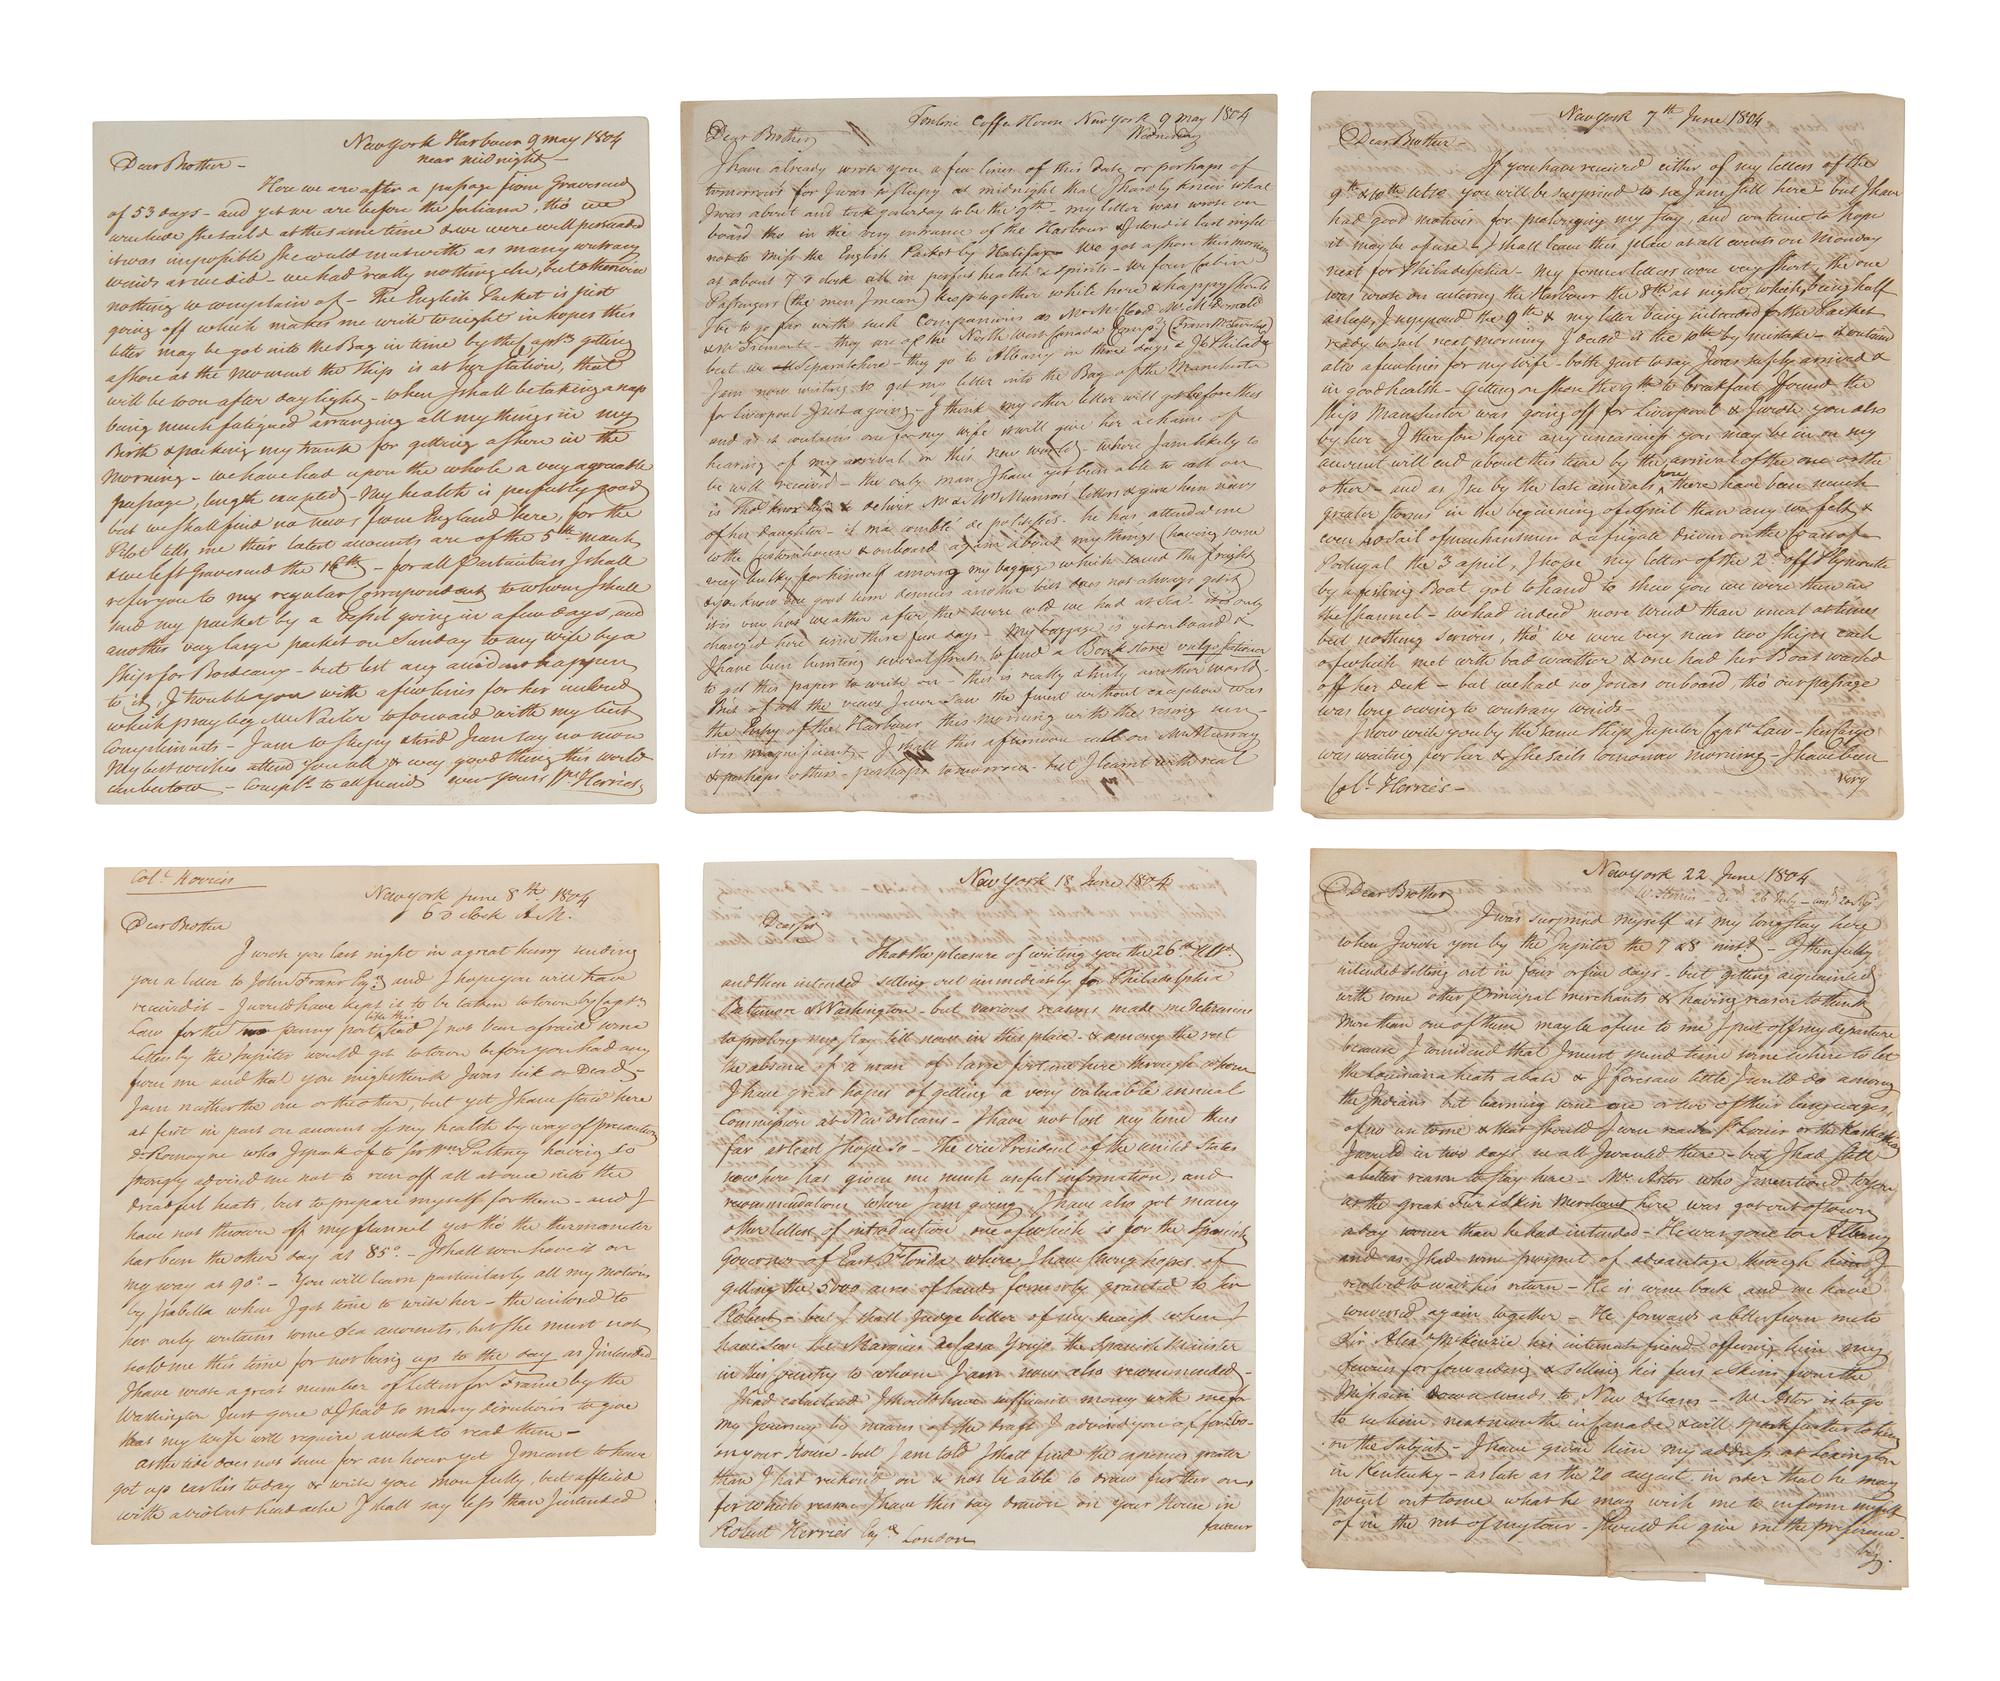 New York Harbour 9 may 1804
near midnight
Dear Brother -
Here we are after a passage from Gravesend
of 53 days - and yet we are before the Juliana, tho' we
conclude she sail'd at the same time & we were well persuaded
it was impossible she could meet with as many contrary
winds as we did - we had really nothing else, but otherwise
nothing to complain of - The English Packet is just
going off which makes me write to night in hopes this
letter may be got into the Bag in time by the Capt.s getting
ashore at the moment the Ship is at her station, that
will be soon after day light - when I shall be taking a nap
being much fatigued arranging all my things in my
Birth & packing my trunk for getting ashore in the
morning - we have had upon the whole a very agreeable
passage, length excepted - My health is perfectly good
but we shall find no news from England here, for the
Pilot tells me their latest accounts are of the 5th march
& we left Gravesend the 16th - for all particulars I shall
refer you to my regular Correspondent to whom I shall
send my packet by a Vessel going in a few days, and
another very large packet on Sunday to my wife by a
Ship for Bordeaux - but lest any accident happen
to it, I trouble you with a few lines for her inclosed
which pray beg Mr to forward with my best
compliments - I am so sleepy & tired I can say no more
My best wishes attend you all & every good thing this world
can bestow - Compts. to all friends ever yours Herries
Tontine Coffee House New York 9 may 1804
Wednesday
Dear Brother
I have already wrote you a few lines of this date or perhaps of
tomorrow for I was so sleepy at midnight that I hardly knew what
I was about and took yesterday to be the 9th - my letter was wrote on
board tho in the very entrance of the Harbour & I closed it last night
not to miss the English Packet by Halifax - We got ashore this morning
at about 7 o'clock all in perfect health & spirits - We four Cabin
Passengers (the men I mean) keep together while here & happy should
I be to go far with such Companions as Mr McLeod McDonald
& Mr Tremont - they are of the North west Canada Comp.y
but we separate here - they go to Albany in three days & I to Philadia
I am now writing to get my letter into the Bag of the Manchester
for Liverpool Just a going - I think my other letter will get before this
and as it contains one for my wife it will give her a chance of
hearing of my arrival in this new world where I am likely to
be well received - the only man I have yet been able to call on
is & deliver Mr & Mrs Munro's letters & give him news
of his daughter - il m'a comblé de politesses - he has attended me
to the Customhouse & on board again about my things (having some
very bulky for himself among my baggage which saved the freight
& you know one good turn deserves another but does not always get it
it is very hot weather after the severe cold we had at Sea - it is only
changed here since these few days - My baggage is yet on board &
I have been hunting several streets to find a Book Store vulgo stationer
to get this paper to write on - this is really truly another world -
But of all the views I ever saw the finest without exception was
the Entry of the Harbour this morning with the rising sun -
it is magnificent - I shall this afternoon call on Mr Murray
& perhaps others - perhaps tomorrow - but I learnt with real
New York 7th June 1804
Dear Brother -
If you have received either of my letters of the
9th & 10th ulto. you will be surprised to see I am still here - but I have
had good motives for prolonging my stay, and continue to hope
it may be of use - I shall leave this place at all events on Monday
next for Philadelphia - My former letters were very short, the one
was wrote on entering the Harbour the 8th at night which, being half
asleep, I supposed the 9th & my letter being intended for the Packet
ready to sail next morning I dated it the 10th by mistake - it contained
also a few lines for my wife - both just to say I was safely arrived &
in good health - Getting on shore the 9th to breakfast I found the
Ship Manchester was going off for Liverpool & I wrote you also
by her - I therefore hope any uneasiness you may be in on my
account will end about this time by the arrival of the one or the
other - and as I see by the late arrivals here there have been much
greater storms in the beginning of April than any we felt &
even 40 sail of merchantmen & a frigate driven on the Coast of
Portugal the 3 april, I hope my letter of the 2d. off Plymouth
by a fishing Boat got to hand to shew you we were then in
the Channel - we had indeed more wind than usual at times
but nothing serious, tho' we were very near two Ships each
of which met with bad weather & one had her Boat washed
off her deck - but we had no Jonas on board, tho' our passage
was long owing to contrary winds -
I now write you by the same Ship Jupiter Capt. Law - her Cargo
was waiting for her & she sails tomorrow morning - I have been
very
Col.l Herries -
Col.l Herries
New York June 8th. 1804
6 O'clock A.M.
Dear Brother
I wrote you last night in a great hurry sending
you a letter to John Franc Esq.r and I hope you will have
received it - I would have kept it to be taken to town by Capt.
Law for the penny post like this had I not been afraid some
letters by the Jupiter would get to town before you had any
from me and that you might think I was sick or Dead -
I am neither the one or the other, but yet I have staid here
at first in part on account of my health by way of precaution
Dr Romayne who I spoke of to Sir Wm Pulteney having so
strongly advised me not to run off all at once into the
dreadful heats, but to prepare myself for them - and I
have not thrown off my flannel yet tho' the thermometer
has been the other day at 85° - I shall soon have it on
my way at 90° - You will learn particularly all my motives
by Isabella when I get time to write her - the inclosed to
her only contains some Sea accounts, but she must not
scold me this time for not being up to the day as I intended
I have wrote a great number of letters for France by the
Washington just gone & I had so many directions to give
that my wife will require a week to read them -
As the tide does not serve for an hour yet I meant to have
got up earlier to day & write you more fully, but afflicted
with a violent head ache I shall say less than I intended
New York 18 June 1804
Dear Sir
I had the pleasure of writing you the 26th. Ulto.
and then intended setting out immediately for Philadelphia
Baltimore & Washington - but various reasons made me determine
to prolong my stay till now in this place - & among the rest
the absence of a man of large fortune here through whom
I have great hopes of getting a very valuable annual
Commission at New Orleans - I have not lost my time thus
far at least I hope so - The vice President of the united States
now here has given me much useful information, and
recommendations where I am going, I have also got many
other letters of introduction, one of which is for the Spanish
Governor of East Florida where I have strong hopes of
getting the 5000 acres of lands formerly granted to Sir
Robert - but I shall judge better of success when I
have seen the Marquis de Casa Yrujo the Spanish Minister
in this Country to whom I am now also recommended -
I had calculated I should have sufficient money with me for
my Journey by means of the draft I advised you of for
on your House - but I am told I shall find the expences greater
than I had reckon'd on & not be able to draw further on,
for which reason I have this day drawn on your House in
favour
Robert Herries Esq.re London
New York 22 June 1804
Dear Brother
I was surprised myself at my long stay here
when I wrote you by the Jupiter the 7 & 8 inst. - I then fully
intended setting out in four or five days - but getting acquainted
with some other principal merchants & having reason to think
more than one of them may be of use to me I put off my departure
because I considered that I must spend time somewhere to let
the Louisiana heats abate & I foresaw little I could do among
the Indians but learning some one or two of their languages,
of no use to me & that should I even reach St Louis or the Kaskaskias
I would in two days see all I wanted there - but I had still
a better reason to stay here - Mr. Astor who I mentioned to you
as the great Fur & Skin Merchant here was got out of town
a day sooner than he had intended - He was gone to Albany
and as I had some prospect of advantage through him I
resolved to wait his return - He is come back and we have
conversed again together - He forwards a letter from me to
Sir Alexr McKenzie his intimate friend offering him my
services for forwarding & selling his furs & skins from the
Missouri downwards to New Orleans - Mr Astor is to go
to see him next month in Canada & will speak further to him
on the subject - I have given him my address at Lexington
in Kentucky - as late as the 20 august, in order that he may
point out to me what he may wish me to inform myself
of in the rest of my tour - Should he give me the preference -